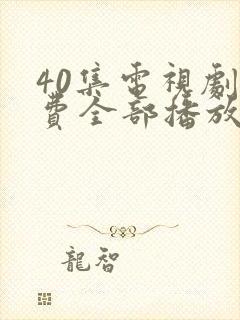 40集電視劇
費全部播放
龍智